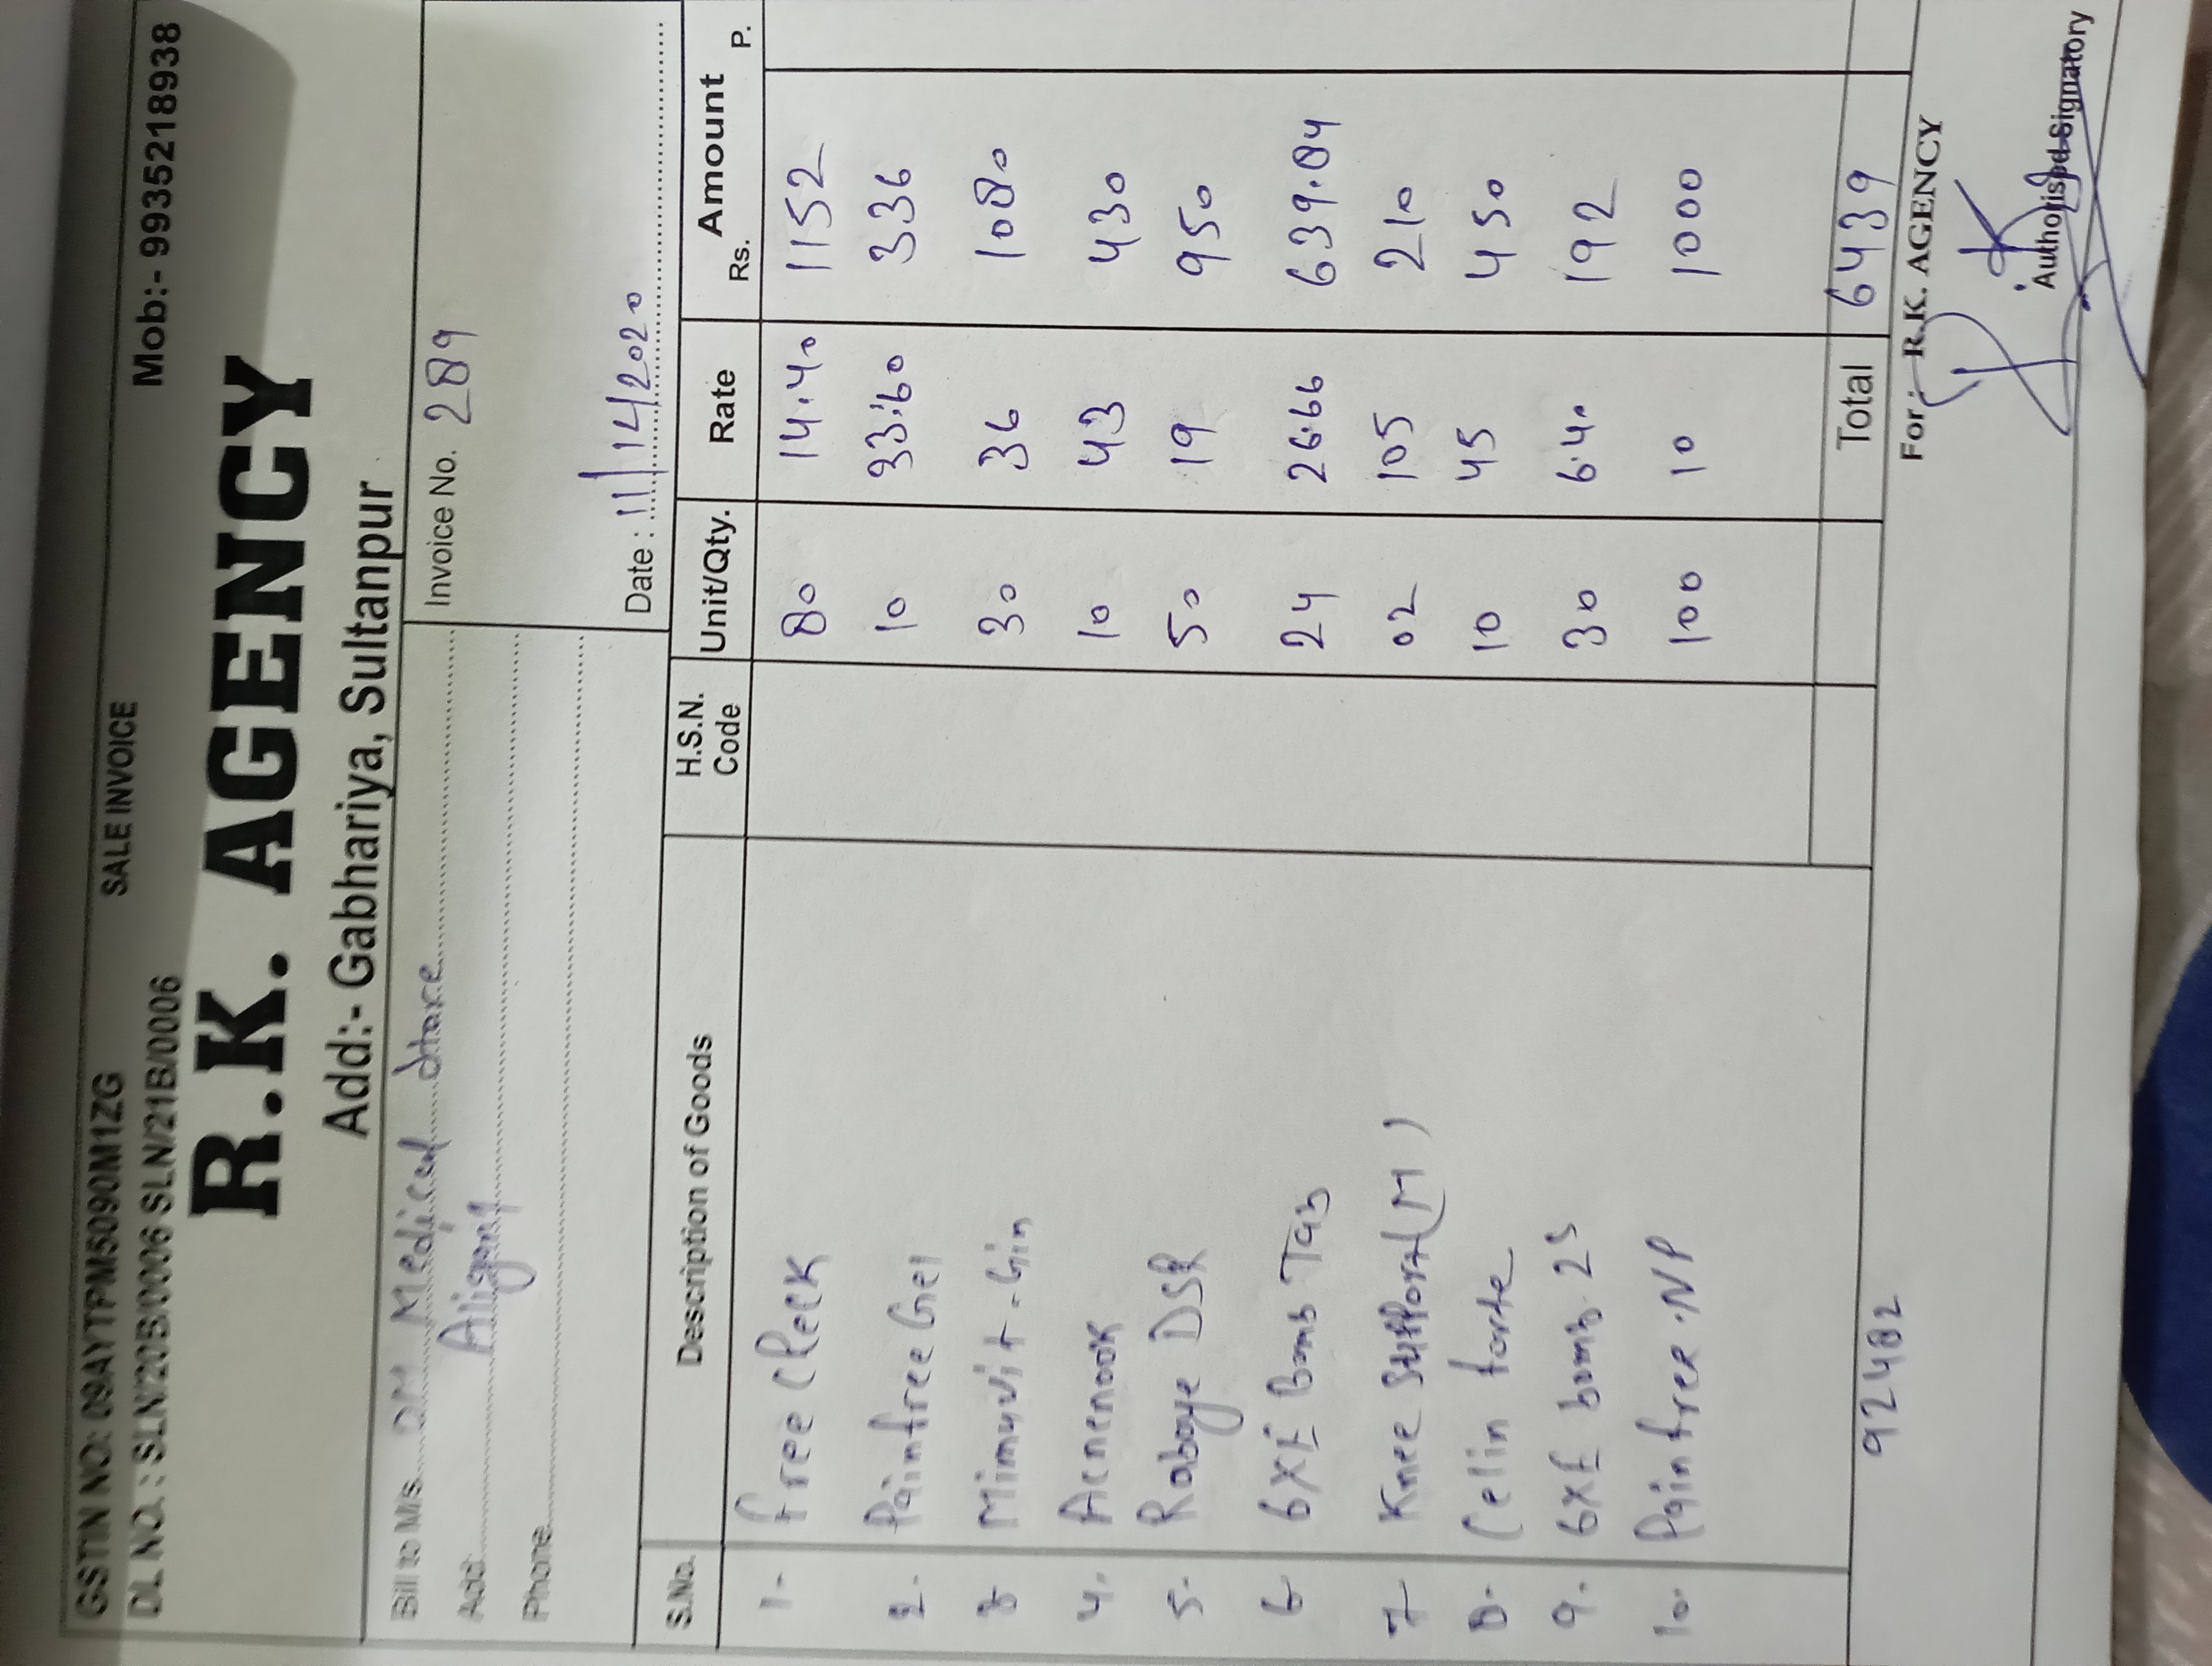 GSTIN NO: 09AYTPM5090M1ZG SALE INVOICE Mob:- 9935218938
DL NO. : SLN/20B/0006 SLN/21B/0006
R.K. AGENCY
Add:- Gabhariya, Sultanpur
Bill to M/s. Medical Store Invoice No. 289
Add. Aliganj
Phone Date : 11/14/2020
S.No. Description of Goods H.S.N. Code Unit/Qty. Rate Amount Rs. P.
1- free Check 80 14.40 1152
2- Painfree Gel 10 33.60 336
3 Mimuvit-Gin 30 36 1080
4. Acnenook 10 43 430
5. Raboye DSR 50 19 950
6 6XE Bomb Tab 24 26.66 639.84
7 Knee Support (M) 02 105 210
8. Celin forte 10 45 450
9. 6XE bomb 2S 30 6.40 192
10. Painfree.NP 100 10 1000
Total 6439
92482
For : R.K. AGENCY
Authorised Signatory